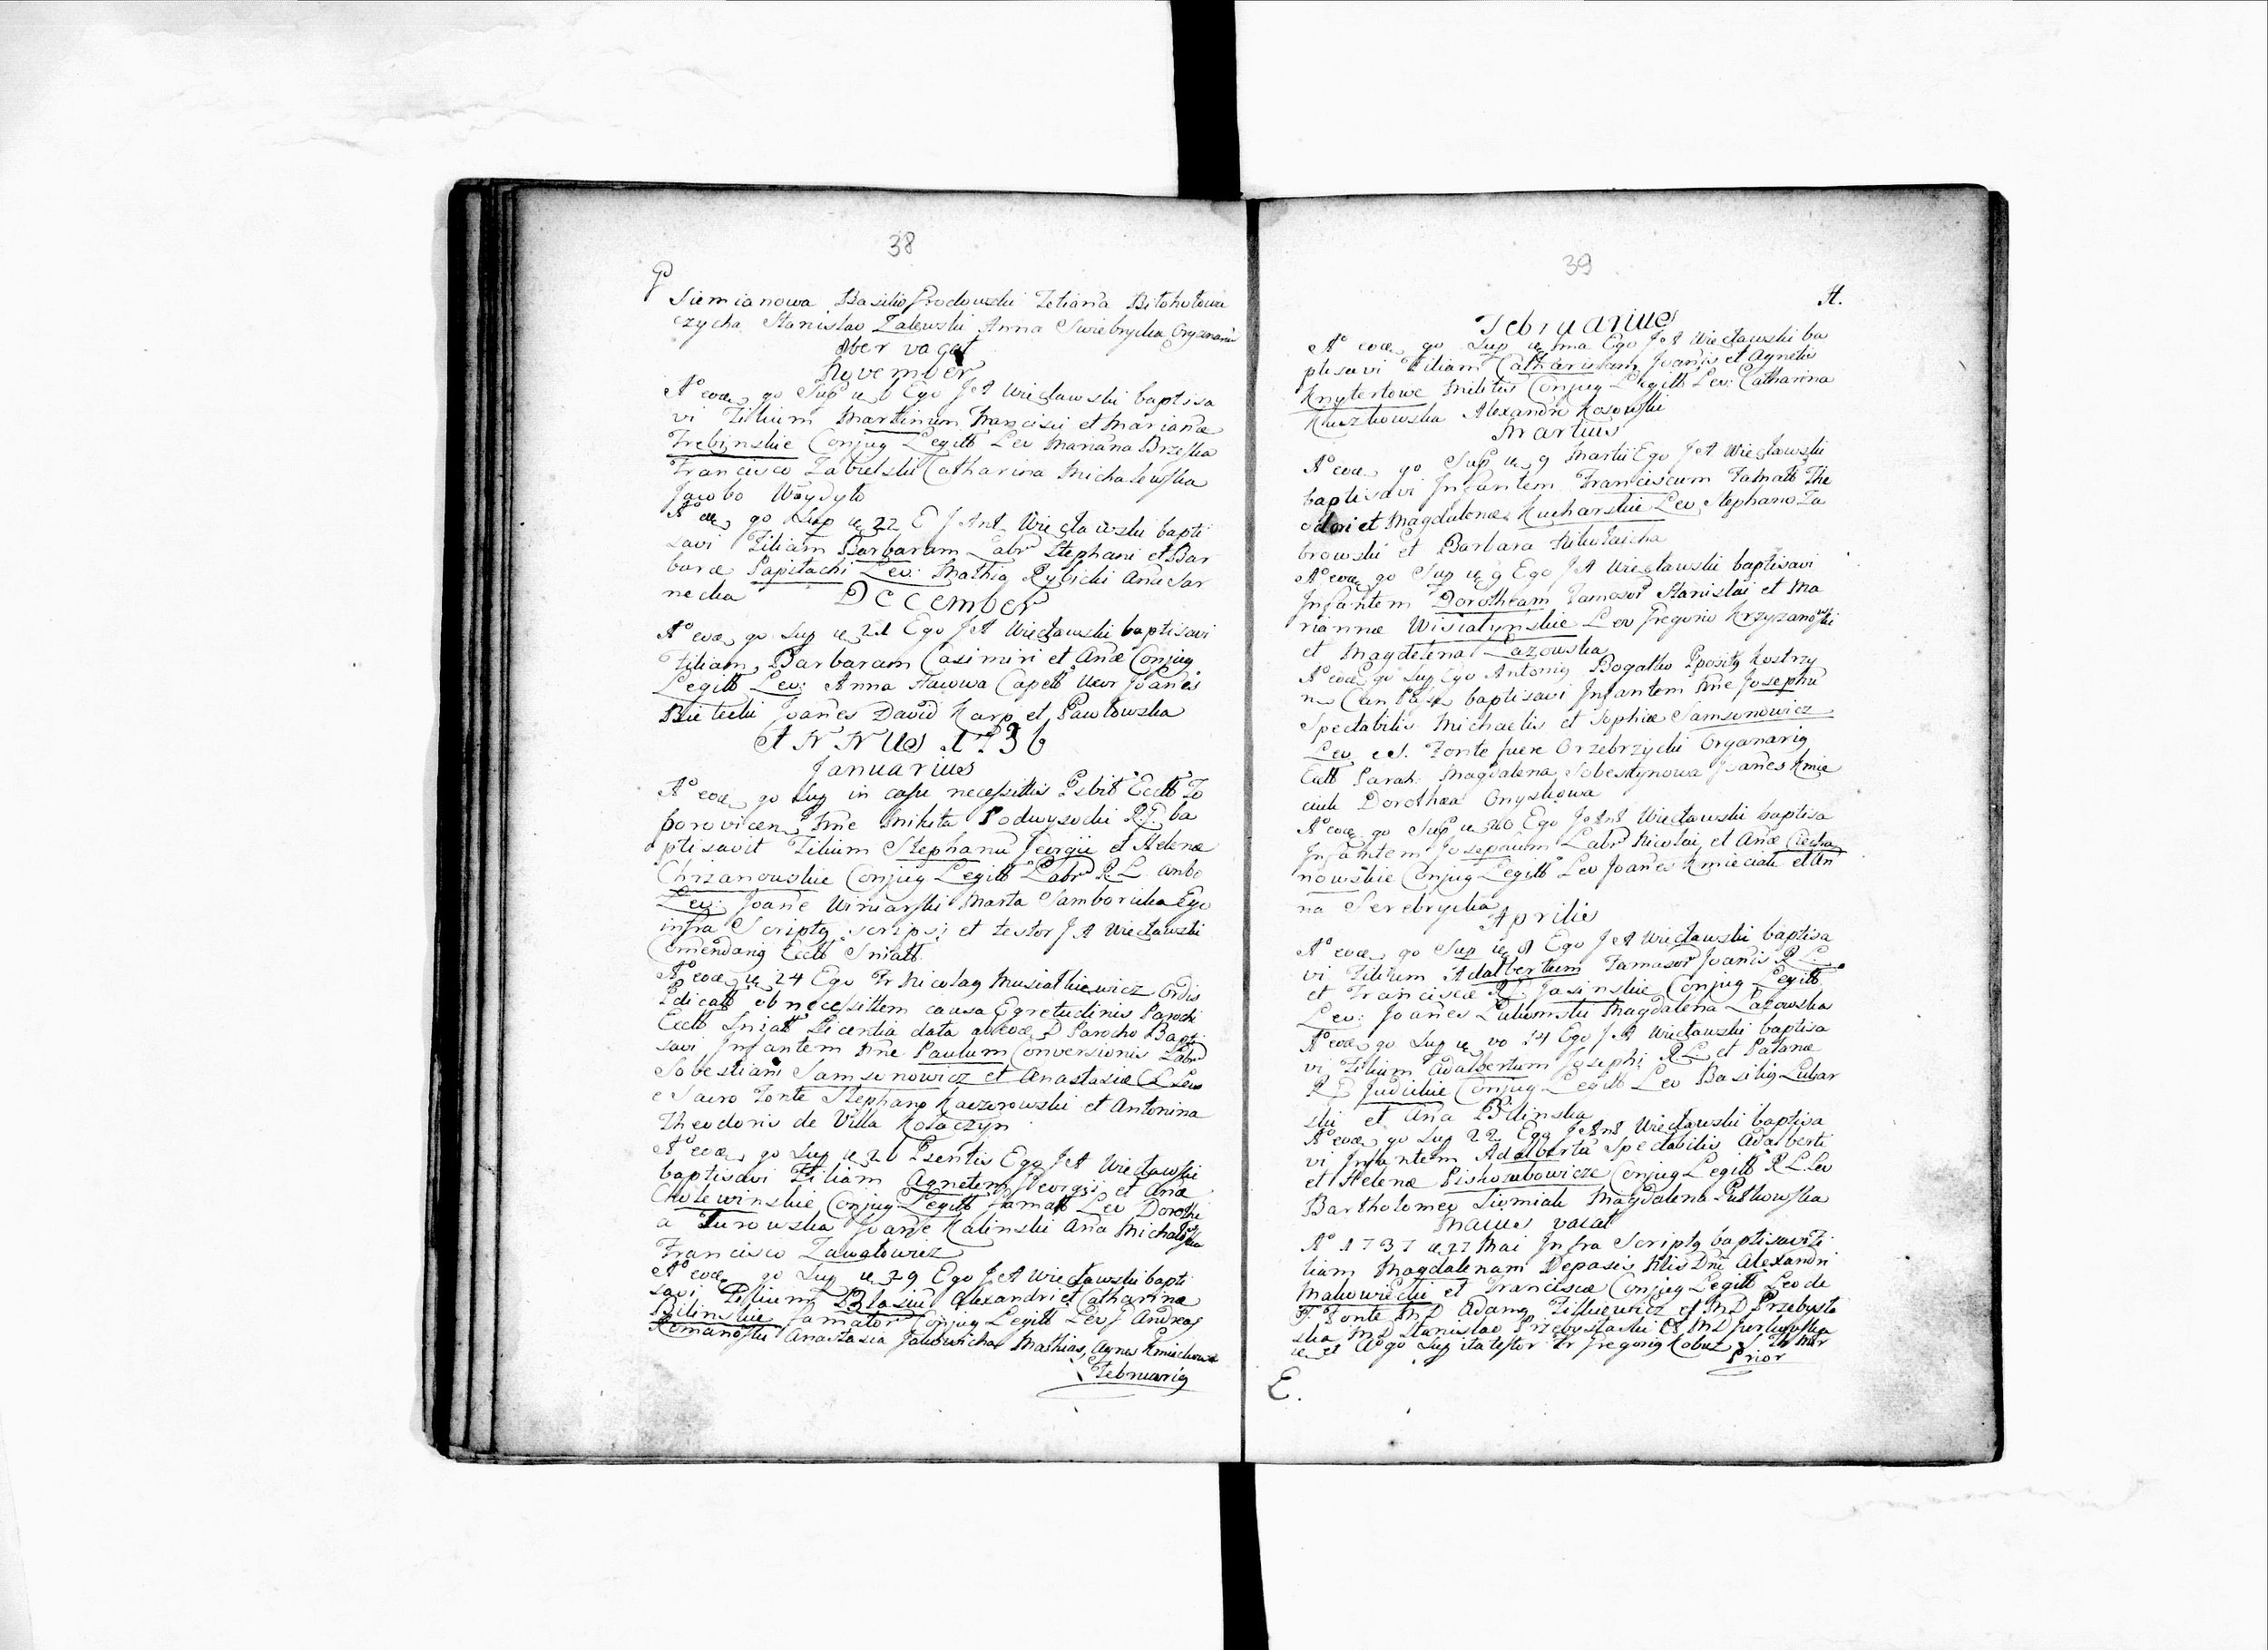 38
Siemianowa Basilio Brodowski Tetiana Bitohotowi
czycha Stanislao Zalewski Anna Swiebrycka
8ber vacat
November
Aº eode qo Sup Ego J A Wieclawski baptisa
vi Filium Martinum Francisci et Mariañæ
Trebinskie Conjug Legitt Lev Mariana Brzeska
Francisco Zabielski Catharina Michalewska
Jacobo Woydylo
22 E J Ant Wieclawski bapti
savi Filiam Barbaram Labr Stephani et Bar
baræ Papitachi Lev: Mathia Rybicki Aña Sar
necka December
Aº eode qo Sup 21 Ego J A Wieclawski baptisavi
Filiam Barbaram Casimiri et Añæ Conjug
Legitt Lev: Anna Uxor Joañes
Joañes David Karp et Pawlowska
ANNUS 1736
Januarius
Aº eode qo Sup in casu necessittis Psbit Ecctt To
porovicen Nne Nikita Podwysocki R P. ba
ptisavit Filium Stephanū Georgii et Helenæ
Chrzanowskie Conjug Legitt Labr R L ambo
Lev: Joañe Winiarski Marta Samboricka Ego
infra Scriptq scripsi et testor J A Wieclawski
Comendariq Ecctt Sniatt
Aº eode 24 Ego Fr Nicolaq Musiatkiewicz Ordis
Pdicatt ob necessittem causa Egretudinis Parochi
Ecctt Sniatt Licentia data ab eode D Parocho Bapti
savi Infantem Nne Paulum Conversionis Labr
Sobestiani Samsonowicz et Anastasiæ C L Lev
e Sacro Fonte Stephano Kaczorowski et Antonina
Theodoris de Villa Kolaczyn
Aº eode qo Sup 26 Psentis Ego J A Wieclawski
baptisavi Filiam Agnetem Georgii et Añæ
Cholewinskie Conjug Legitt Famatt Lev Dorothe
a Turowska Joañe Kalinski Aña Michalowska
Francisco Zawalowicz
Aº eode qo Sup 29 Ego J A Wieclawski bapti
savi Filium Blasiū Alexandri et Catharinæ
Bilinskie Famator Conjug Legitt Lev Andreas
Romanoski Anastasia Jakowicha Mathias, Agnes Kmiekowa
Februariq
39
A.
Februarius
Aº eode qo Sup ma Ego J A Wieclawski ba
ptisavi Filiam Catharinam Joañis et Agnetis
Militis Conjug Legitt Lev: Catharina
Kuszkowska Alexandre Kosowski
Martius
Aº eode qo Sup 9 Martii Ego J A Wieclawski
baptisavi Infantem Franciscum Famatt The
odori et Magdalenæ Kucharskie Lev Stephano Za
browski et Barbara Mikolaicha
Aº eode qo Sup 9 Ego J A Wieclawski baptisavi
Infantem Dorotheam Famosor Stanislai et Ma
riannæ Wisiatynskie Lev Gregorio Krzyzanowski
et Magdelena Lazowska
Aº eode qo Sup Ego Antoniq Bogatko Ppositq Kostrzy
n Can baptisavi Infantem Nne Josephū
Spectabilis Michaelis et Sophiæ Samsonowicz
Lev e S. Fonte fuere Grzebrzycki Organariq
Ecctt Paroh: Magdalena Sobestynowa Joañes Kmie
ciuk Dorothea Onyskowa
Aº eode qo Sup 20 Ego J Ant Wieclawski baptisa
Infantem Josephum Labr Nicolai et Añæ Ciecha
nowskie Conjug Legitt Lev Joañes Kmieciak et An
na Serebrycka
Aprilis
Aº eode qo Sup 8 Ego J A Wieclawski baptisa
vi Filium Adalbertum Famosor Joañis R L
et Franciscæ R L Jasinskie Conjug Legitt
Lev: Joañes Magdalena Lazowska
Aº eode qo Sup vo 14 Ego J A Wieclawski baptisa
vi Filium Adalbertum Josephi R L et Palanæ
R L Judickie Conjug Legitt Lev Basiliq Lubar
ski et Aña Bilinska
Aº eode qo Sup 22 Ego J Ant Wieclawski baptisa
vi Infantem Adalbertū Spectabilis Adalberti
et Helenæ Piskozubowicze Conjug Legitt R L Lev
Bartholomeo Siemiak Magdalena Putkowska
Maius vacat
Aº 1737 27 Mai Infra Scriptq baptisavi Fi
liam Magdalenam Depasis Nlis Dni Alexandri
Makowiecki et Franciscæ Conjug Legitt Lev de
S. Fonte M D Adamq Filkiewicz et M D Przebysla
ska M D Stanislao Przebyslaski et M D
et Aº qo Sup ita testor Fr Gregoriq Kobuz
Prior
E.